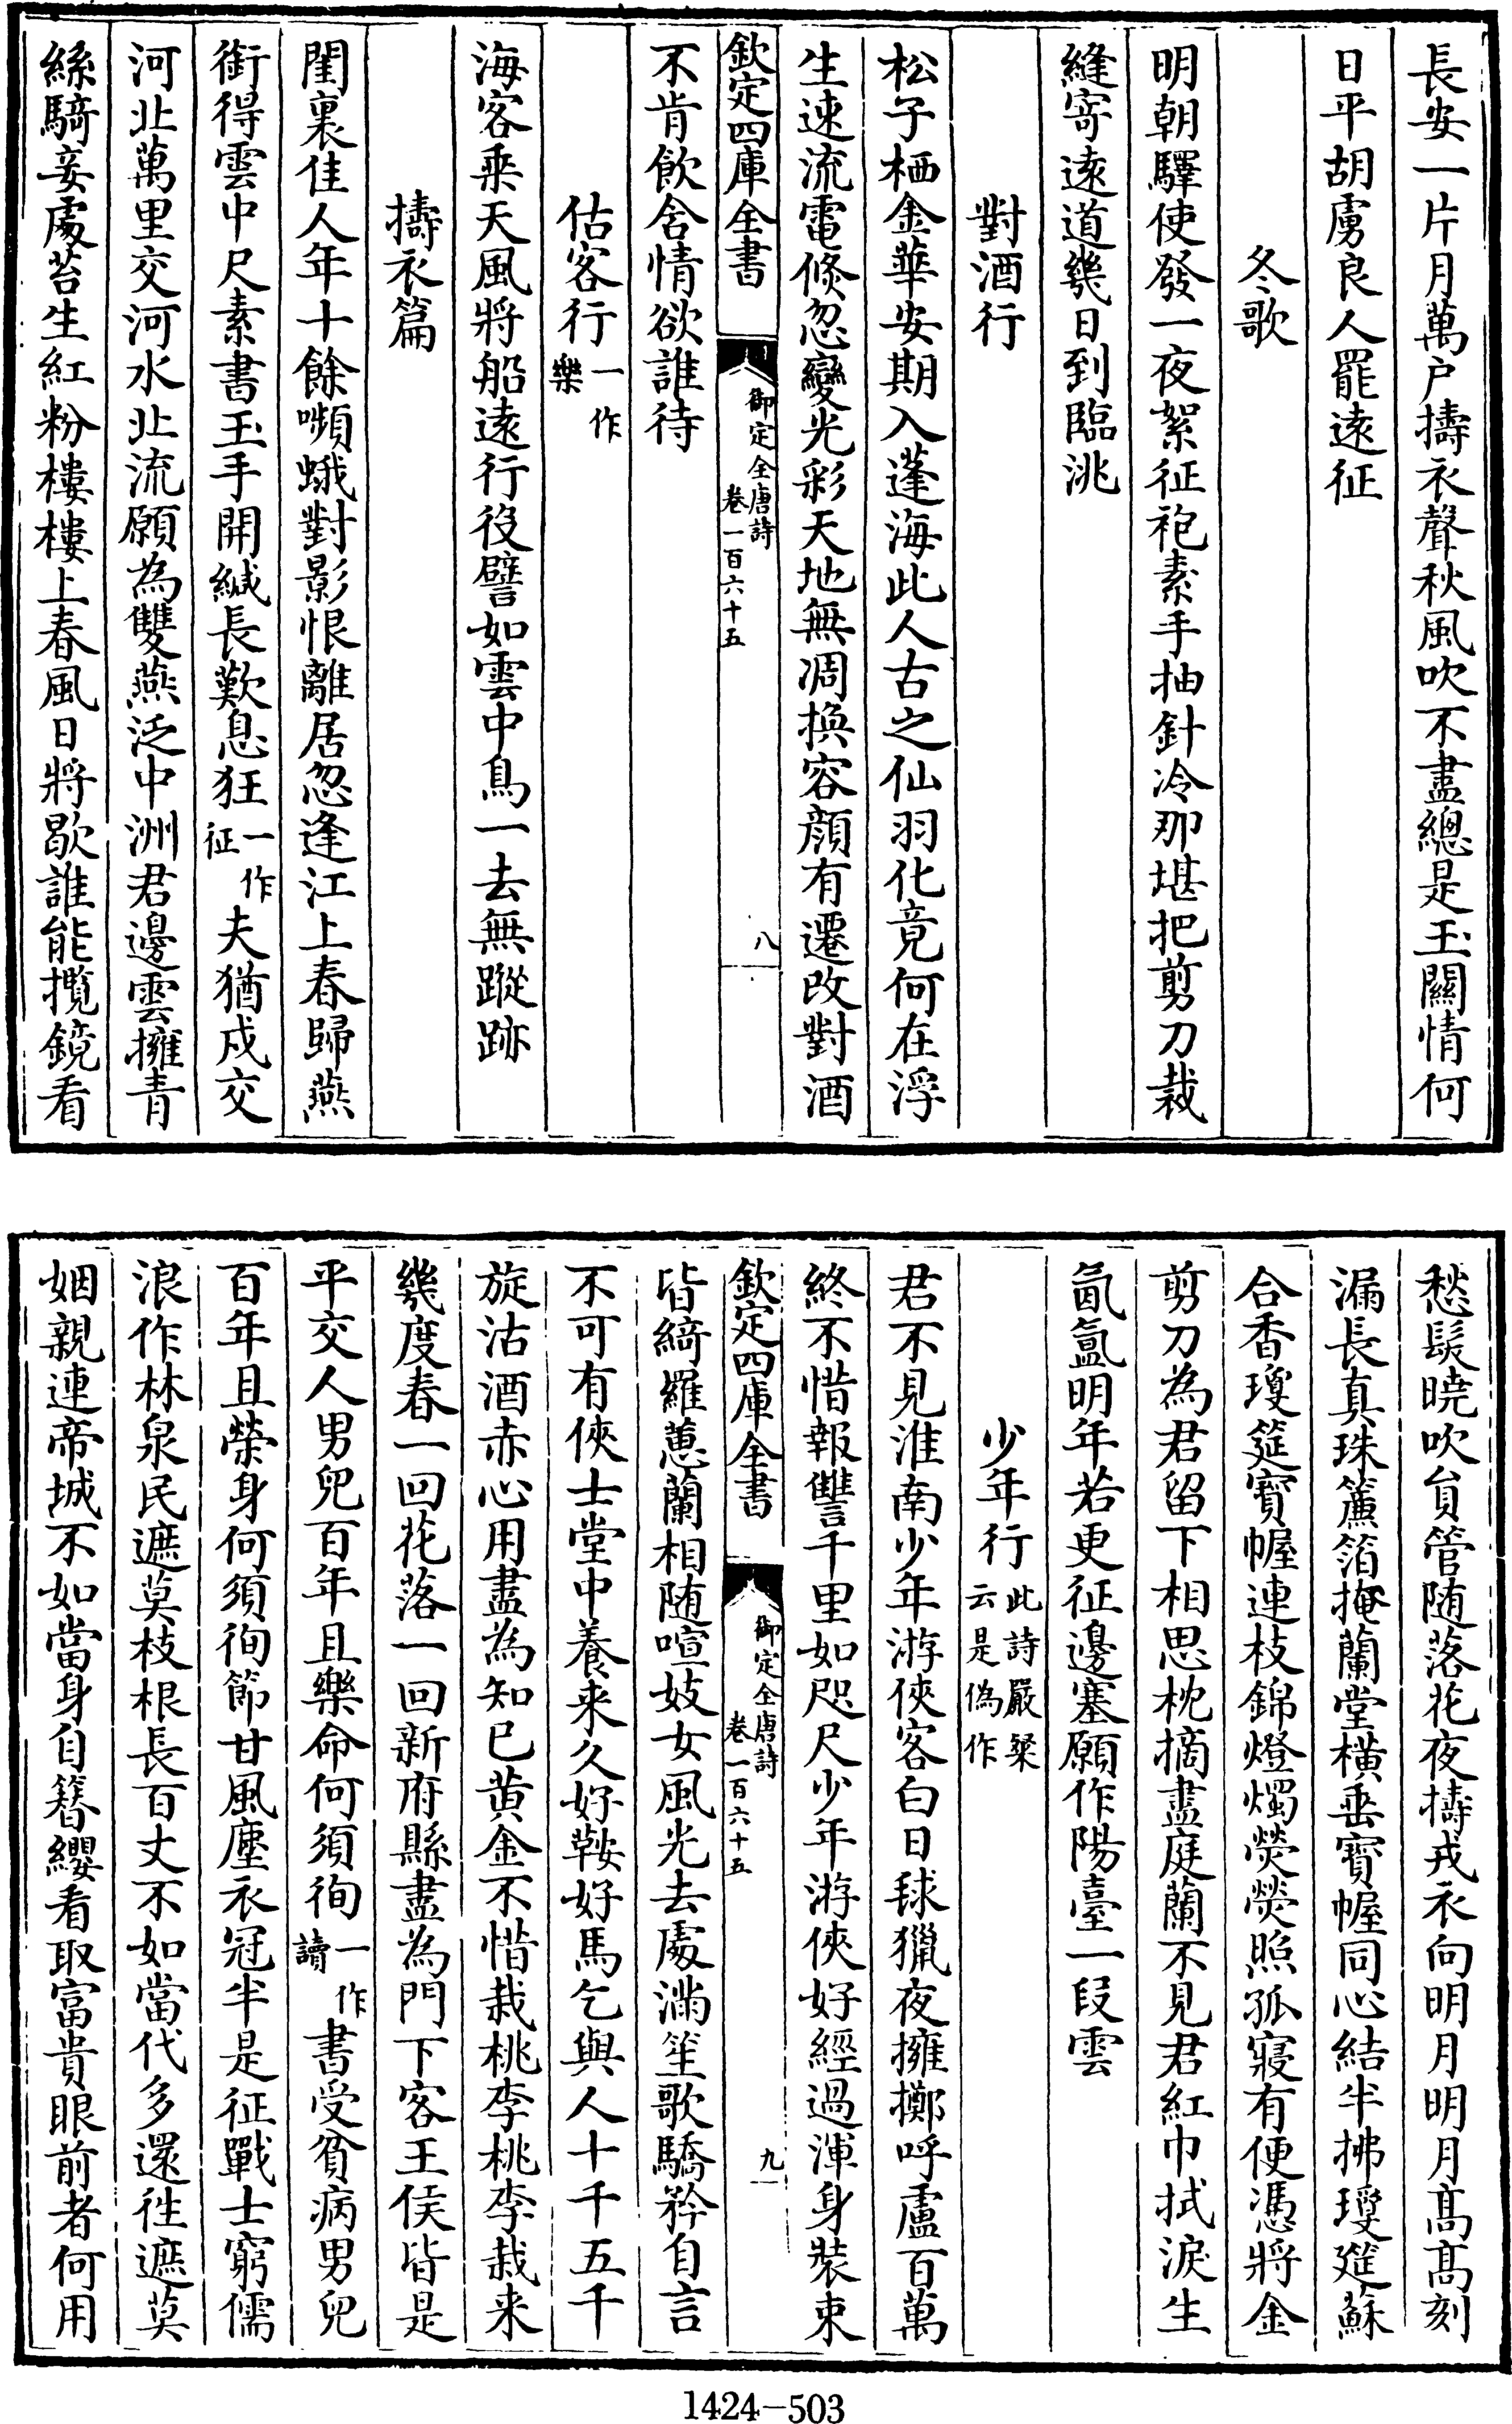 長安一片月萬户擣衣聲秋風吹不盡總是玉關情何
日平胡虜良人罷逺征
冬歌
明朝驛使發一夜絮征袍素手抽針冷那堪把剪刀裁
縫寄逺道幾日到臨洮
對酒行
松子栖金華安期入蓬海此人古之仙羽化竟何在浮
生速流電倏忽變光彩天地無凋換容顔有遷改對酒
欽定四庫全書
御定全唐詩
卷一百六十五
八
不肯飲含情欲誰待
估客行一作樂
海客乘天風將船逺行役譬如雲中鳥一去無蹤跡
擣衣篇
閨裏佳人年十餘嚬蛾對影恨離居忽逢江上春歸燕
銜得雲中尺素書玉手開緘長歎息狂一作征夫猶戍交
河北萬里交河水北流願為雙燕泛中洲君邊雲擁青
絲騎妾處苔生紅粉樓樓上春風日將歇誰能攬鏡看
愁髮曉吹員管随落花夜擣戎衣向明月明月髙髙刻
漏長真珠簾箔掩蘭堂横垂寶幄同心結半拂瓊筵蘇
合香瓊筵寶幄連枝錦燈燭熒熒照孤寢有便憑將金
剪刀為君留下相思枕摘盡庭蘭不見君紅巾拭淚生
氤氲明年若更征邊塞願作陽臺一段雲
少年行此詩嚴粲云是偽作
君不見淮南少年游俠客白日毬獵夜擁擲呼盧百萬
終不惜報讐千里如咫尺少年游俠好經過渾身裝束
欽定四庫全書
御定全唐詩
卷一百六十五
九
皆綺羅蕙蘭相随喧妓女風光去處滿笙歌驕矜自言
不可有俠士堂中養来久好鞍好馬乞與人十千五千
旋沽酒赤心用盡為知已黄金不惜栽桃李桃李栽来
幾度春一回花落一回新府縣盡為門下客王侯皆是
平交人男兒百年且樂命何須徇一作讀書受貧病男兒
百年且榮身何須徇節甘風塵衣冠半是征戰士窮儒
浪作林泉民遮莫枝根長百丈不如當代多還徃遮莫
姻親連帝城不如當身自簪纓看取富貴眼前者何用
1424-503